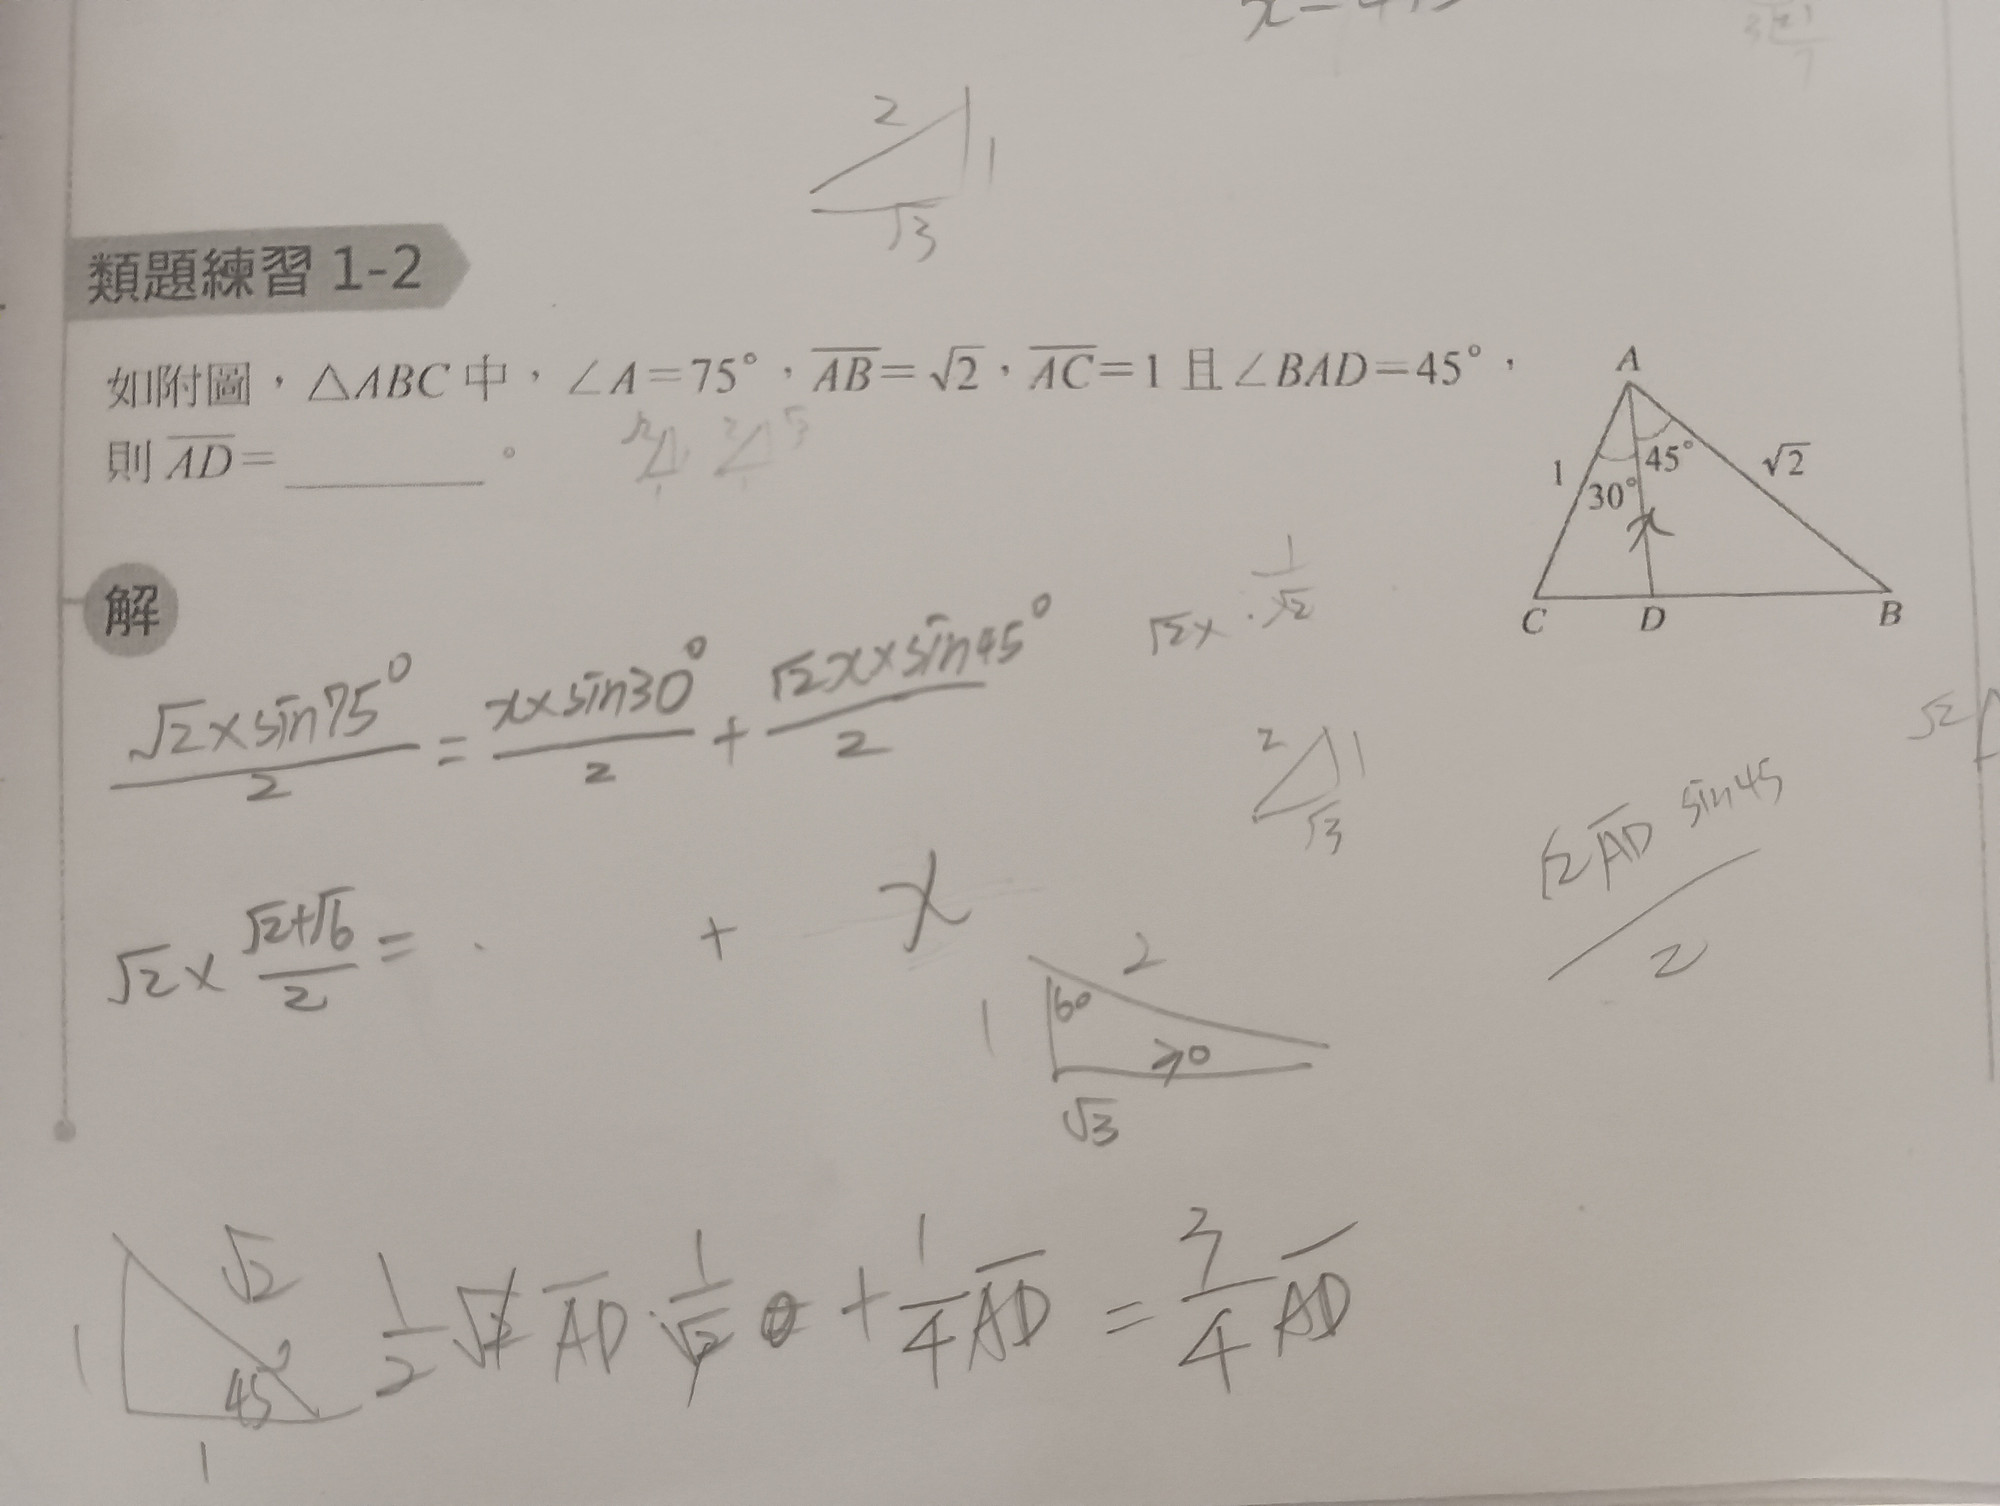 2
1
√3
類題練習 1-2
如附圖，△ABC 中，∠A=75°，\overline{AB}=√2，\overline{AC}=1 且∠BAD=45°，
則 \overline{AD}=________。
A
1
30°
45°
√2
x
C
D
B
解
√2×sin75°/2 = x×sin30°/2 + √2x×sin45°/2
√2x · 1/√2
2
1
√3
√2 \overline{AD} sin45/2
√2
√2×(√2+√6)/2 = + x
2
60
1
30
√3
√2
1
45°
1
1/2 √2 \overline{AD} · 1/√2 + 1/4 \overline{AD} = 3/4 \overline{AD}